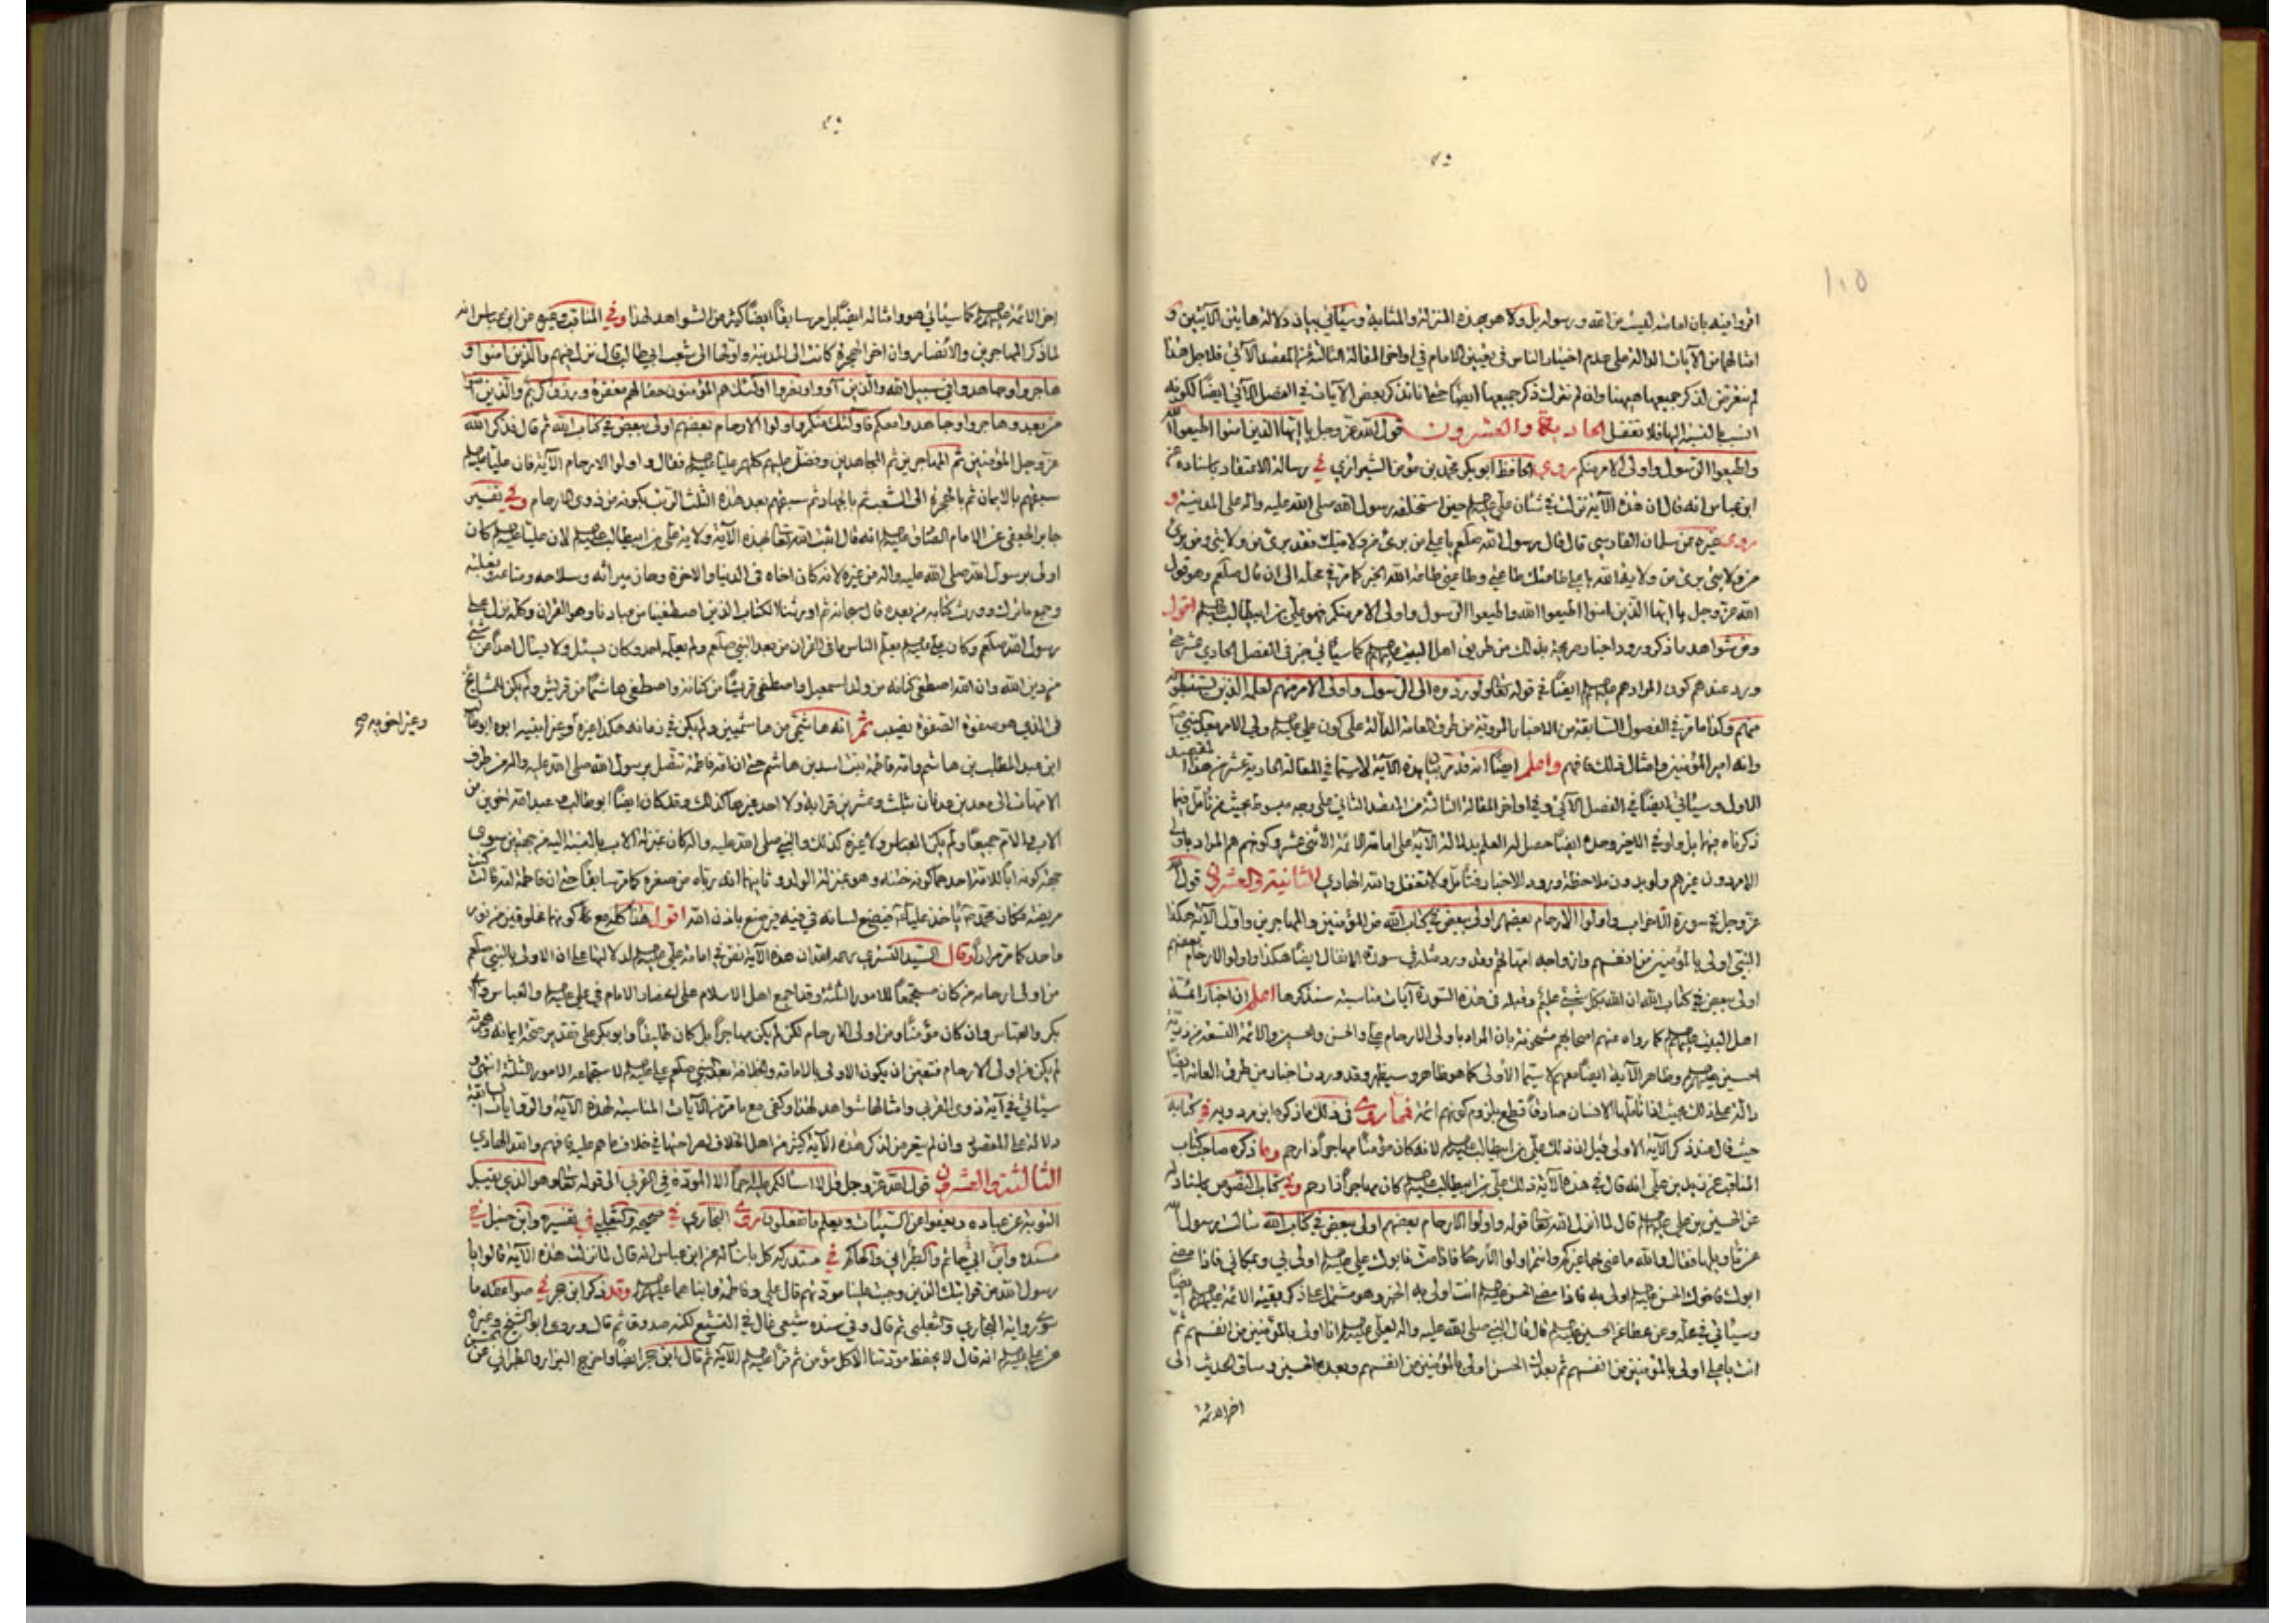 ١٠٥
اقروا فيه بان امامته ليست من الله ورسوله بل ولا هو بهذه المنزلة والمثابة وسيأتي بيان دلالة هاتين الآيتين و
امثالهما من الآيات الدالة على عدم اختيار الناس في تعيين الامام في اواخر المقالة الثالثة من المقصد الآتي فلاجل هذا
لم نتعرض لذكر جميعها ههنا وان لم نترك ذكر جميعها ايضا حتى انا نذكر بعض الآيات في الفصل الآتي ايضا لكونه
انسب بالنسبة اليها فلا تغفل الحادية والعشرون قول الله عز وجل يا ايها الذين امنوا اطيعوا الله
واطيعوا الرسول واولى الامر منكم روى الحافظ ابو بكر محمد بن مؤمن الشيرازي في رسالة الاعتقاد باسناده عن
ابن عباس انه قال ان هذه الآية نزلت في شان علي عليه السلم حين استخلفه رسول الله صلى الله عليه واله على المدينة و
روى غيره عن سلمان الفارسي قال قال رسول الله صلعم يا علي من برئ من ولايتك فقد برئ من ولايتي ومن برئ
من ولايتي برئ من ولاية الله يا علي طاعتك طاعتي وطاعتي طاعة الله الخبر كما مر في محله الى ان قال صلعم وهو قول
الله عز وجل يا ايها الذين امنوا اطيعوا الله واطيعوا الرسول واولى الامر منكم فهو علي بن ابيطالب عليه السلم اقول
ومن شواهد ما ذكر ورود اخبار صريحة بذلك من طريق اهل البيت عليهم السلم كما سيأتي خبر في الفصل الحادي عشر حتى
ورد عندهم كون المراد هم عليهم السلم ايضا في قوله تعالى ولو ردوه الى الرسول واولى الامر منهم لعلمه الذين يستنبطونه
منهم وكذا ما مر في الفصول السابقة من الاخبار المروية من طرف العامة الدالة على كون علي عليه السلم ولي الامر بعد النبي صلعم
وانه امير المؤمنين وامثال ذلك فافهم واعلم ايضا انه قد مر بيان هذه الآية لاسيما في المقالة الحادية عشر من هذا المقصد
الاول وسيأتي ايضا في الفصل الآتي وفي اواخر المقالة الثالثة من المقصد الثاني على وجه مبسوط بحيث من تأمل فيما
ذكرناه فيها بل ولو في الاخير وحده ايضا حصل له العلم بدلالة الآية على امامة الائمة الاثنى عشر وكونهم هم المراد باولى
الامر دون غيرهم ولو بدون ملاحظة ورود الاخبار فتأمل ولا تغفل والله الهادي الثانية والعشرون قول الله
عز وجل في سورة الاحزاب واولوا الارحام بعضهم اولى ببعض في كتاب الله من المؤمنين والمهاجرين واول الآية هكذا
النبي اولى بالمؤمنين من انفسهم وازواجه امهاتهم وقد ورد مثله في سورة الانفال ايضا هكذا واولوا الارحام بعضهم
اولى ببعض في كتاب الله ان الله بكل شيء عليم وقبله في هذه السورة آيات مناسبة سنذكرها اعلم ان اخبار ائمة
اهل البيت عليهم السلم كما رواه عنهم اصحابهم مشحونة بان المراد باولى الارحام علي والحسن والحسين والائمة التسعة من ذرية
الحسين عليهم السلم وظاهر الآية ايضا معهم لاسيما الأولى كما هو ظاهر وسيظهر وقد وردت اخبار من طرف العامة ايضا
دالة على ذلك بحيث اذا تأملها الانسان صادقا قطع بلزوم كونهم ائمة فما روى في ذلك ما ذكره ابن مردويه في كتابه
حيث قال عند ذكر الآية الاولى قيل ان ذلك علي بن ابيطالب عليه السلم لانه كان مؤمنا مهاجرا ذا رحم وما ذكره صاحب كتاب
المناقب عن زيد بن علي انه قال في هذه الآية ذلك علي بن ابيطالب عليه السلم كان مهاجرا ذا رحم وفي كتاب النصوص باسناد له
عن الحسين بن علي عليه السلم قال لما انزل الله تعالى قوله واولوا الارحام بعضهم اولى ببعض في كتاب الله سالت رسول الله
عن تأويلها فقال والله ما عنى بها غيركم وانتم اولوا الارحام فاذا مت فابوك علي عليه السلم اولى بي وبمكاني فاذا مضى
ابوك فاخوك الحسن عليه السلم اولى به فاذا مضى الحسن عليه السلم انت اولى به الخبر وهو مشتمل على ذكر بقية الائمة عليهم السلم ايضا
وسيأتي في محله وعن عطا عن الحسين عليه السلم قال قال النبي صلى الله عليه واله لعلي عليه السلم انا اولى بالمؤمنين من انفسهم ثم
انت يا علي اولى بالمؤمنين من انفسهم ثم بعدك الحسن اولى بالمؤمنين من انفسهم وبعده الحسين وساق الحديث الى
اخر الائمة
اخر الائمة عليهم السلم كما سيأتي هو وامثاله ايضا بل مر سابقا ايضا كثير من الشواهد لهذا وفي المناقب وغيره عن ابن عباس انه
لما ذكر المهاجرين والانصار وان اخر الهجرة كانت الى المدينة واولها الى شعب ابي طالب قال نزل فيهم والذين امنوا و
هاجروا وجاهدوا في سبيل الله والذين آووا ونصروا اولئك هم المؤمنون حقا لهم مغفرة ورزق كريم والذين امنوا
من بعد وهاجروا وجاهدوا معكم فاولئك منكم واولوا الارحام بعضهم اولى ببعض في كتاب الله ثم قال فذكر الله
عز وجل المؤمنين ثم المهاجرين ثم المجاهدين وفضل عليهم كلهم عليا عليه السلم فقال واولوا الارحام الآية فان عليا عليه السلم
سبقهم بالايمان ثم بالهجرة الى الشعب ثم بالجهاد ثم سبقهم بعد هذه الثلث الرتب بكونه من ذوى الارحام وفي تفسير
جابر الجعفي عن الامام الصادق عليه السلم انه قال اثبت الله تعالى بهذه الآية ولاية علي بن ابيطالب عليه السلم لان عليا عليه السلم كان
اولى برسول الله صلى الله عليه واله من غيره لانه كان اخاه في الدنيا والاخرة وحاز ميراثه وسلاحه ومتاعه وبغلته
وجميع ما ترك وورث كتابه من بعده قال سبحانه ثم اورثنا الكتاب الذين اصطفينا من عبادنا وهو القران وكله نزل على
رسول الله صلعم وكان علي عليه السلم يعلم الناس ما في القران من بعد النبي صلعم ولم يعلمه احد وكان يسئل ولا يسأل احدا عن شيء
من دين الله وان الله اصطفى كنانة من ولد اسمعيل واصطفى قريشا من كنانة واصطفى هاشما من قريش ولم يكن الشايخ
في الذي هو صفوة الصفوة نصيب ثم انه هاشمي من هاشميين ولم يكن في زمانه هكذا غيره ابوه ابو طالب
وغير اخويه صح
ابن عبد المطلب بن هاشم وامه فاطمة بنت اسد بن هاشم حتى ان امه فاطمة تتصل برسول الله صلى الله عليه واله من طرف
الامهات الى معد بن عدنان بثلث وعشرين قرابة ولا احد غيرها كذلك وقد كان ايضا ابو طالب مع عبد الله اخوين من
الاب والام جميعا ولم يكن العباس ولا غيره كذلك والنبي صلى الله عليه واله كان بمنزلة الاب بالنسبة اليه من جهتين سوى
جهة كونه ابا للامة احدهما كونه ختنه وهو بمنزلة الولد وثانيهما انه رباه من صغره كما مر سابقا حتى ان فاطمة امه قالت كنت
مريضة فكان محمد يأخذ عليا فيضع لسانه في فيه فيرضع باذن الله اقول هذا كله مع كونهما مخلوقين من نور
واحد كما مر مرارا وقال السيد التستري رحمه الله ان هذه الآية نص في امامة علي عليه السلم لدلالتها على ان الاولى بالنبي صلعم
من اولى ارحامه من كان مستجمعا للامور الثلثة وقد اجمع اهل الاسلام على انحصار الامام في علي عليه السلم والعباس وابي
بكر والعباس وان كان مؤمنا ومن اولى الارحام لكن لم يكن مهاجرا بل كان طليقا وابو بكر على تقدير صحة ايمانه وهجرته
لم يكن من اولى الارحام فتعين ان يكون الاولى بالامامة والخلافة بعد النبي صلعم علي عليه السلم لاستجماعه الامور الثلثة انتهى و
سيأتي في آية ذوى القربى وامثالها شواهد لهذا وكفى مع ما مر من الآيات المناسبة لهذه الآية والروايات السابقة
دلالة على المقصود وان لم يتعرض لذكر هذه الآية كثير من اهل الخلاف لصراحتها في خلاف ما هم عليه فافهم والله الهادي
الثالثة والعشرون قول الله عز وجل قل لا اسالكم عليه اجرا الا المودة في القربى الى قوله تعالى وهو الذي يقبل
التوبة عن عباده ويعفوا عن السيئات ويعلم ما تفعلون روى البخاري في صحيحه والثعلبي في تفسيره وابن حنبل في
مسنده وابن ابي حاتم والطبراني والحاكم في مستدركه كل باسناده عن ابن عباس انه قال لما نزلت هذه الآية قالوا يا
رسول الله من قرابتك الذين وجبت علينا مودتهم قال علي وفاطمة وابناهما عليهم السلم وقد ذكر ابن حجر في صواعقه ما
سوى رواية البخاري والثعلبي ثم قال وفي سنده شيعي غال في التشيع لكنه صدوق ثم قال وروى ابو الشيخ وغيره
عن علي عليه السلم انه قال لا يحفظ مودتنا الا كل مؤمن ثم قرأ عليه السلم الآية ثم قال ابن حجر ايضا واخرج البزار والطبراني عن الحسن